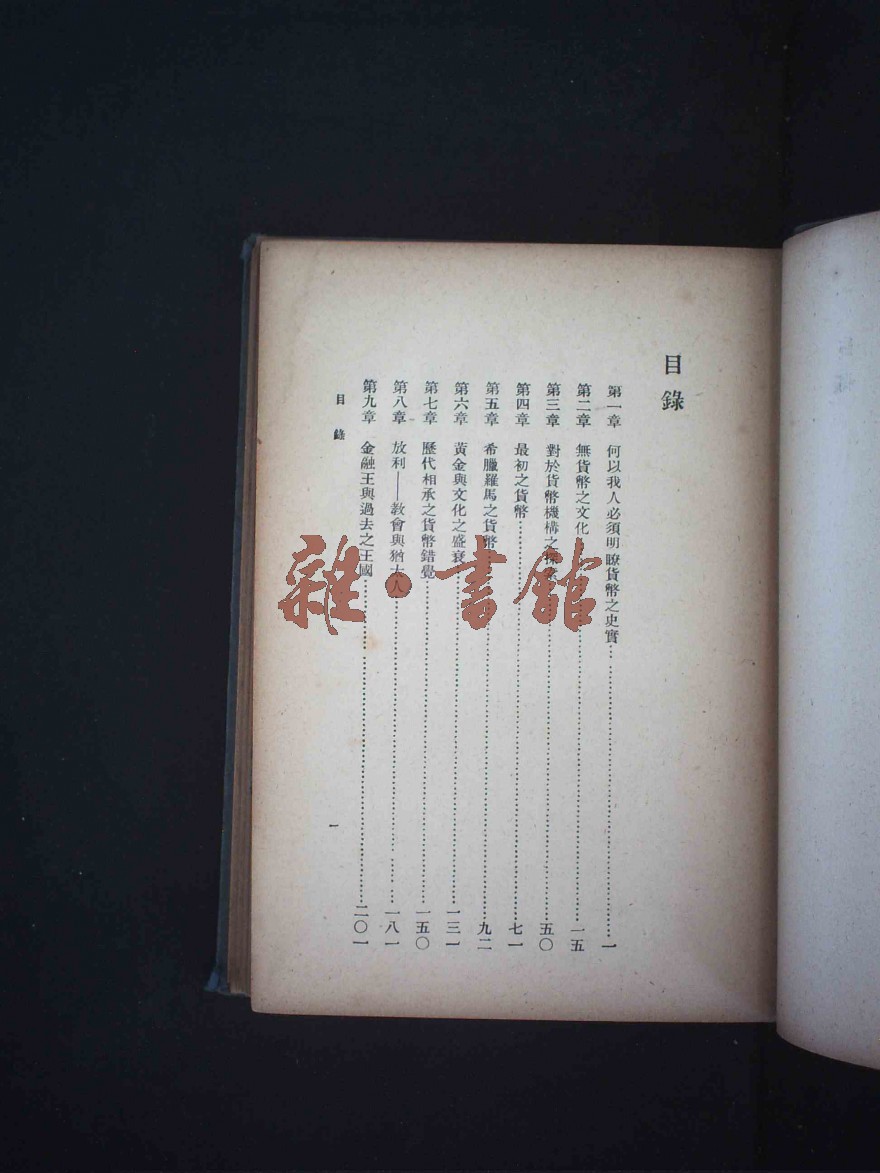 目錄
第一章 何以我人必須明瞭貨幣之史實……一
第二章 無貨幣之文化……一五
第三章 對於貨幣機構之探索……五〇
第四章 最初之貨幣……七一
第五章 希臘羅馬之貨幣……九二
第六章 黃金與文化之盛衰……一三一
第七章 歷代相承之貨幣錯覺……一五〇
第八章 放利——教會與猶太人……一八一
第九章 金融王與過去之王國……二〇一
目錄
一
雜·書館